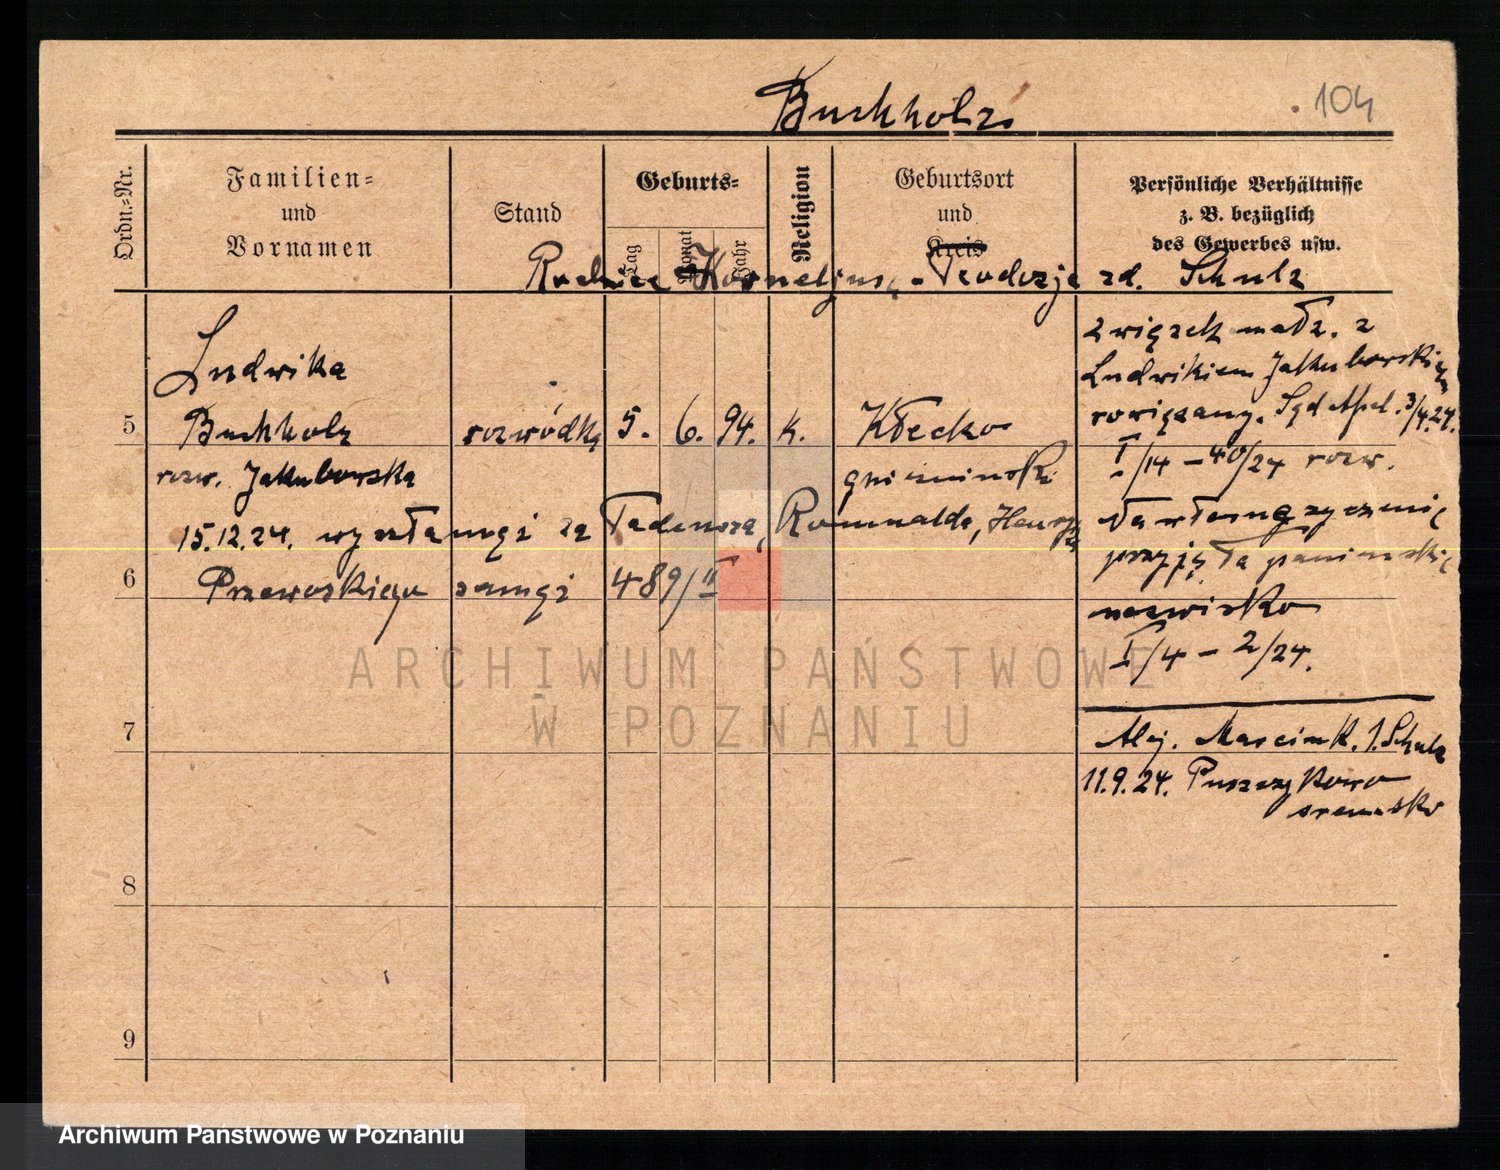 Buchholz
104
Ordn.=Nr.
Familien=
und
Vornamen
Stand
Geburts=
Tag
Monat
Jahr
Religion
Geburtsort
und
Kreis
Persönliche Verhältnisse
z. B. bezüglich
des Gewerbes usw.
Rodzice Korneljusz - Teodozja zd. Schulz
Ludwika
5 Buchholz rozwódka 5. 6. 94. k. Kłecko
rozw. Jakubowska gnieźnieński
15.12.24. wyszła mąż za Tadeusza, Romualda, Henryka
6 Przeworskiego zamąż 489/II
związek małż. z
Ludwikiem Jakubowskim
rozwiązany. Sąd Apel. 3/4.24.
I/14 – 40/24 rozw.
Na własną życzenie
przyjęła panieńskie
nazwisko
I/4 – 2/24.
Alej. Marcink. 1. Schulz
11.9.24. Puszczykowo
śremsko
7
8
9
ARCHIWUM PAŃSTWOWE
W POZNANIU
Archiwum Państwowe w Poznaniu